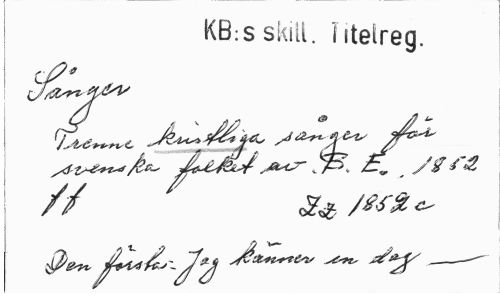 KB:s skill. Titelreg.
Sånger
Trenne kristliga sånger för
svenska folket av B. E. 1852
ff Zz 1852 c
Den första: Jag känner en dag —